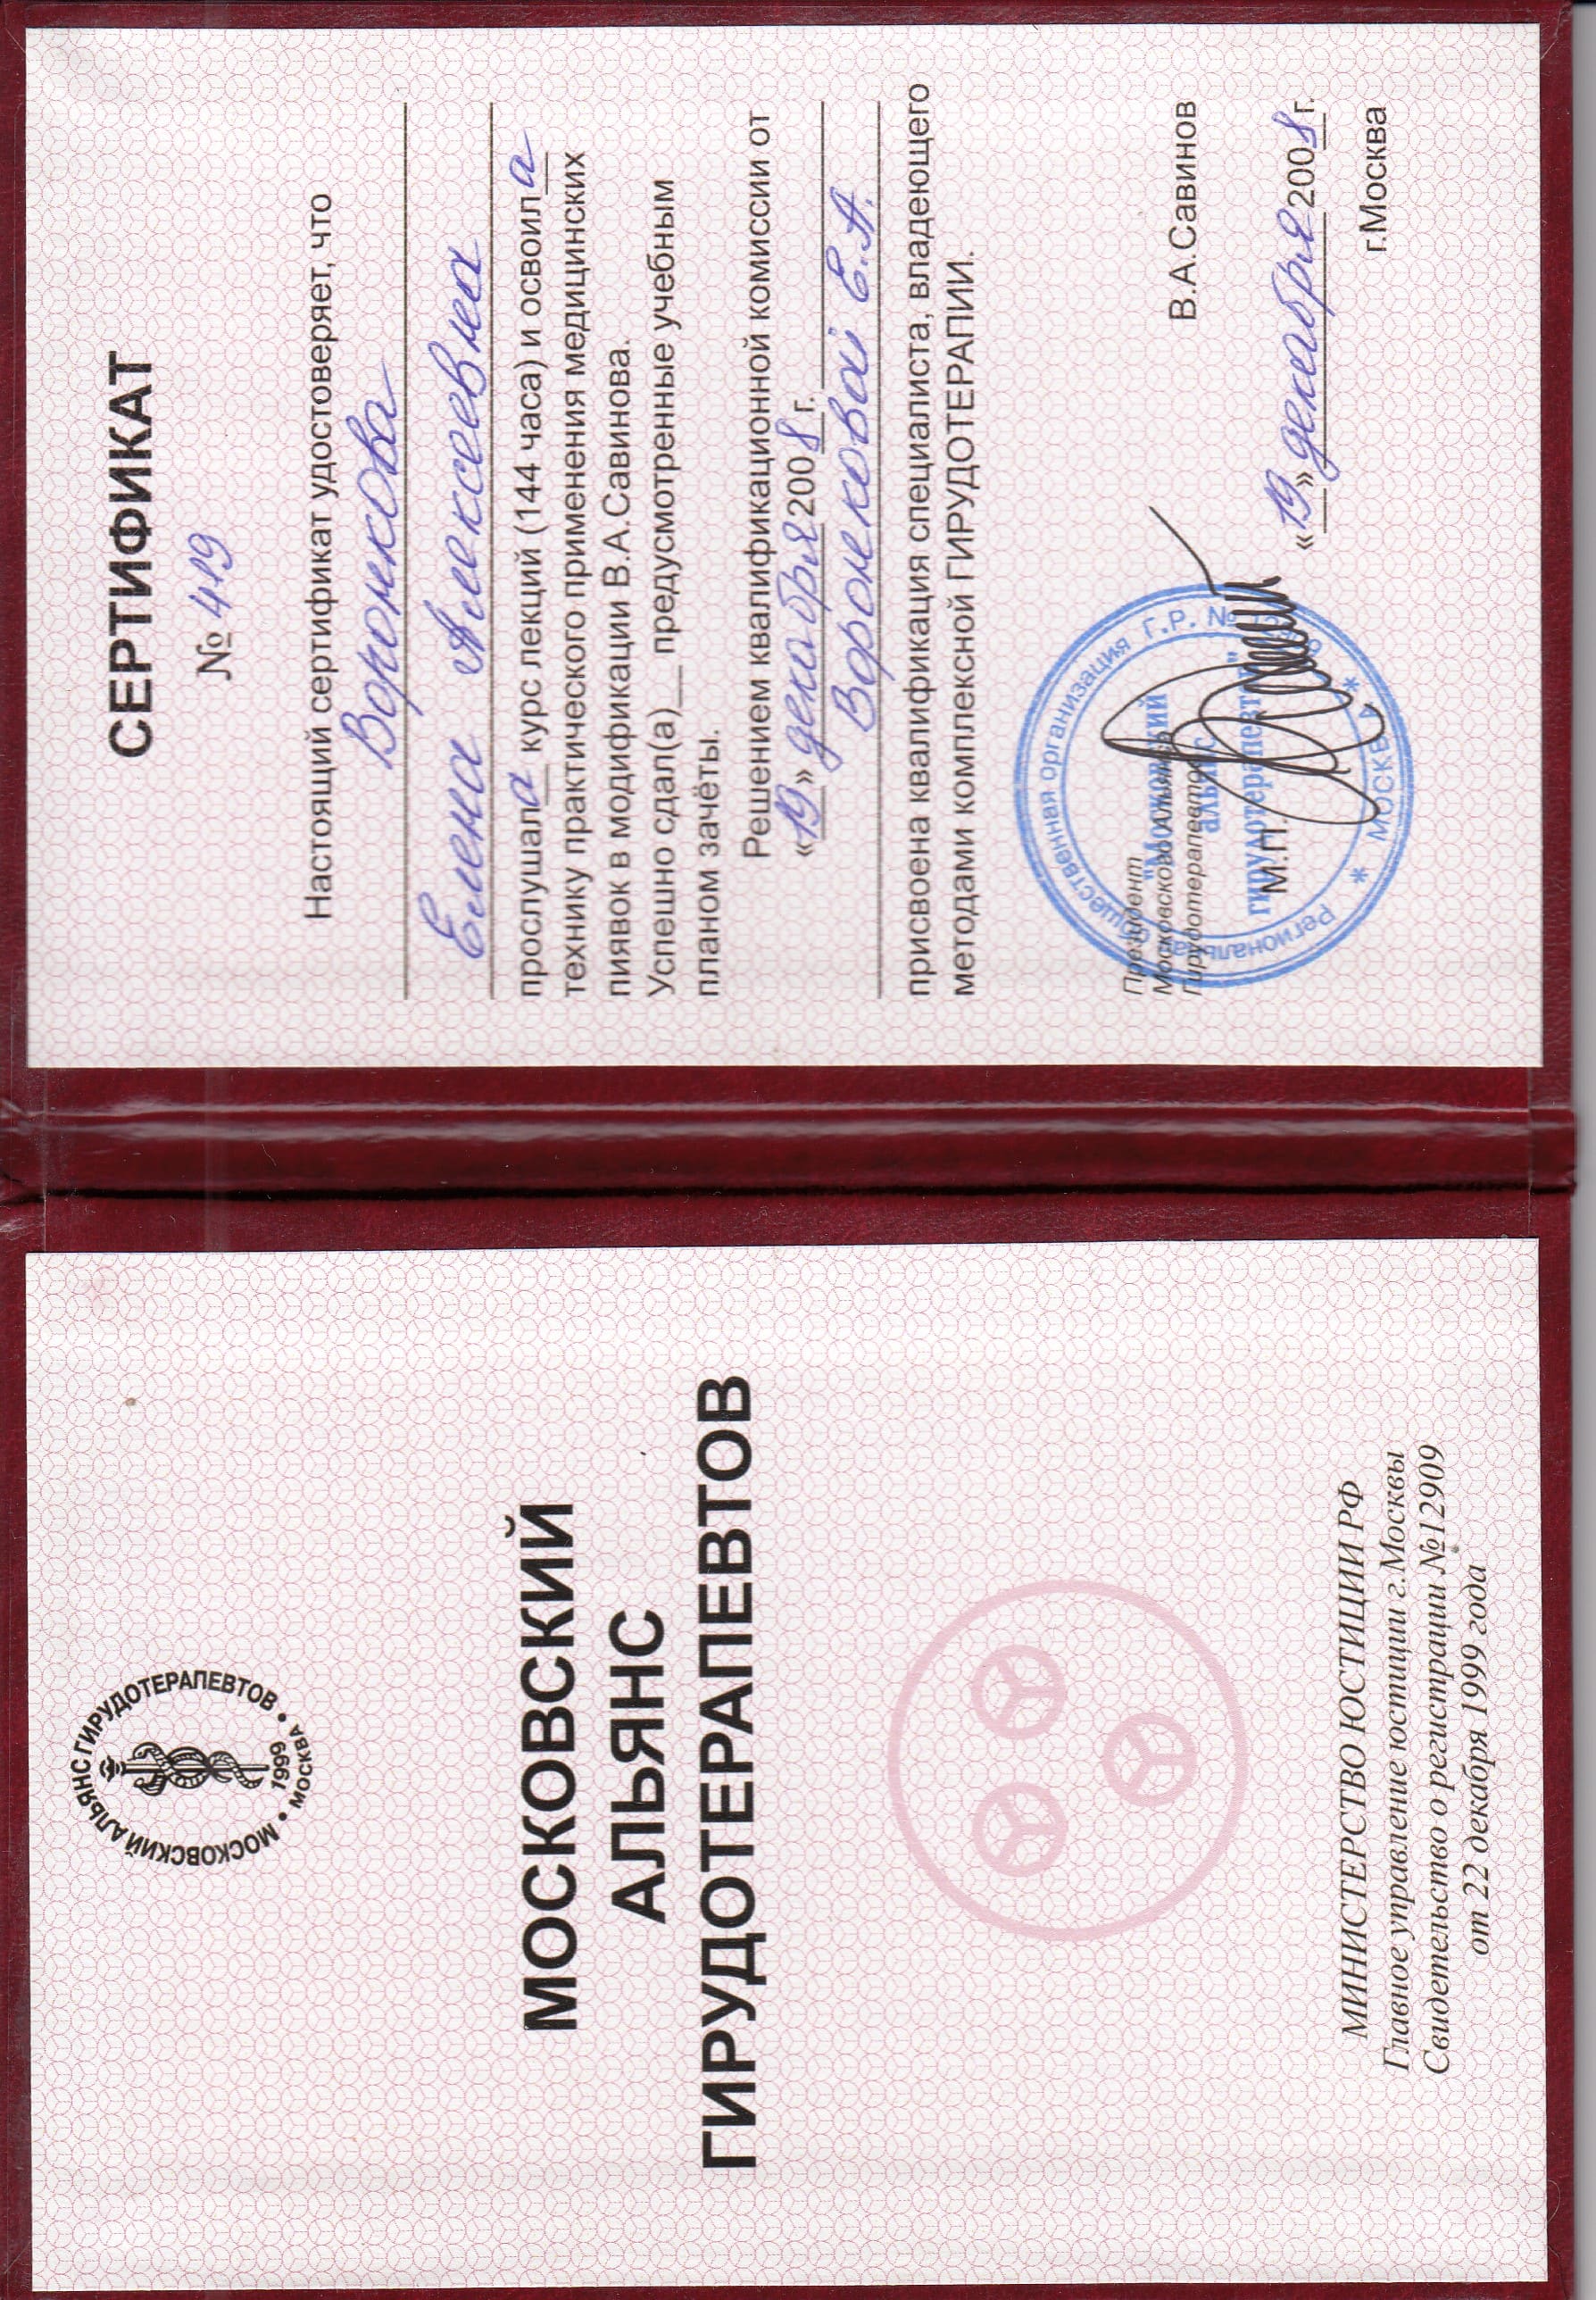 МОСКОВСКИЙ АЛЬЯНС ГИРУДОТЕРАПЕВТОВ
1999
МОСКВА
МОСКОВСКИЙ
АЛЬЯНС
ГИРУДОТЕРАПЕВТОВ
МИНИСТЕРСТВО ЮСТИЦИИ РФ
Главное управление юстиции г.Москвы
Свидетельство о регистрации №12909
от 22 декабря 1999 года
СЕРТИФИКАТ
№ 419
Настоящий сертификат удостоверяет, что
Воронкова
Елена Алексеевна
прослушала курс лекций (144 часа) и освоила
технику практического применения медицинских
пиявок в модификации В.А.Савинова.
Успешно сдал(а)__ предусмотренные учебным
планом зачёты.
Решением квалификационной комиссии от
«19» декабря 2008 г.
Воронковой Е.А.
присвоена квалификация специалиста, владеющего
методами комплексной ГИРУДОТЕРАПИИ.
Региональная общественная организация Г.Р. №
"Московский
альянс
гирудотерапевтов"
* МОСКВА *
Президент
Московского Альянса
Гирудотерапевтов
В.А.Савинов
М.П.
«19» декабря 2008 г.
г.Москва